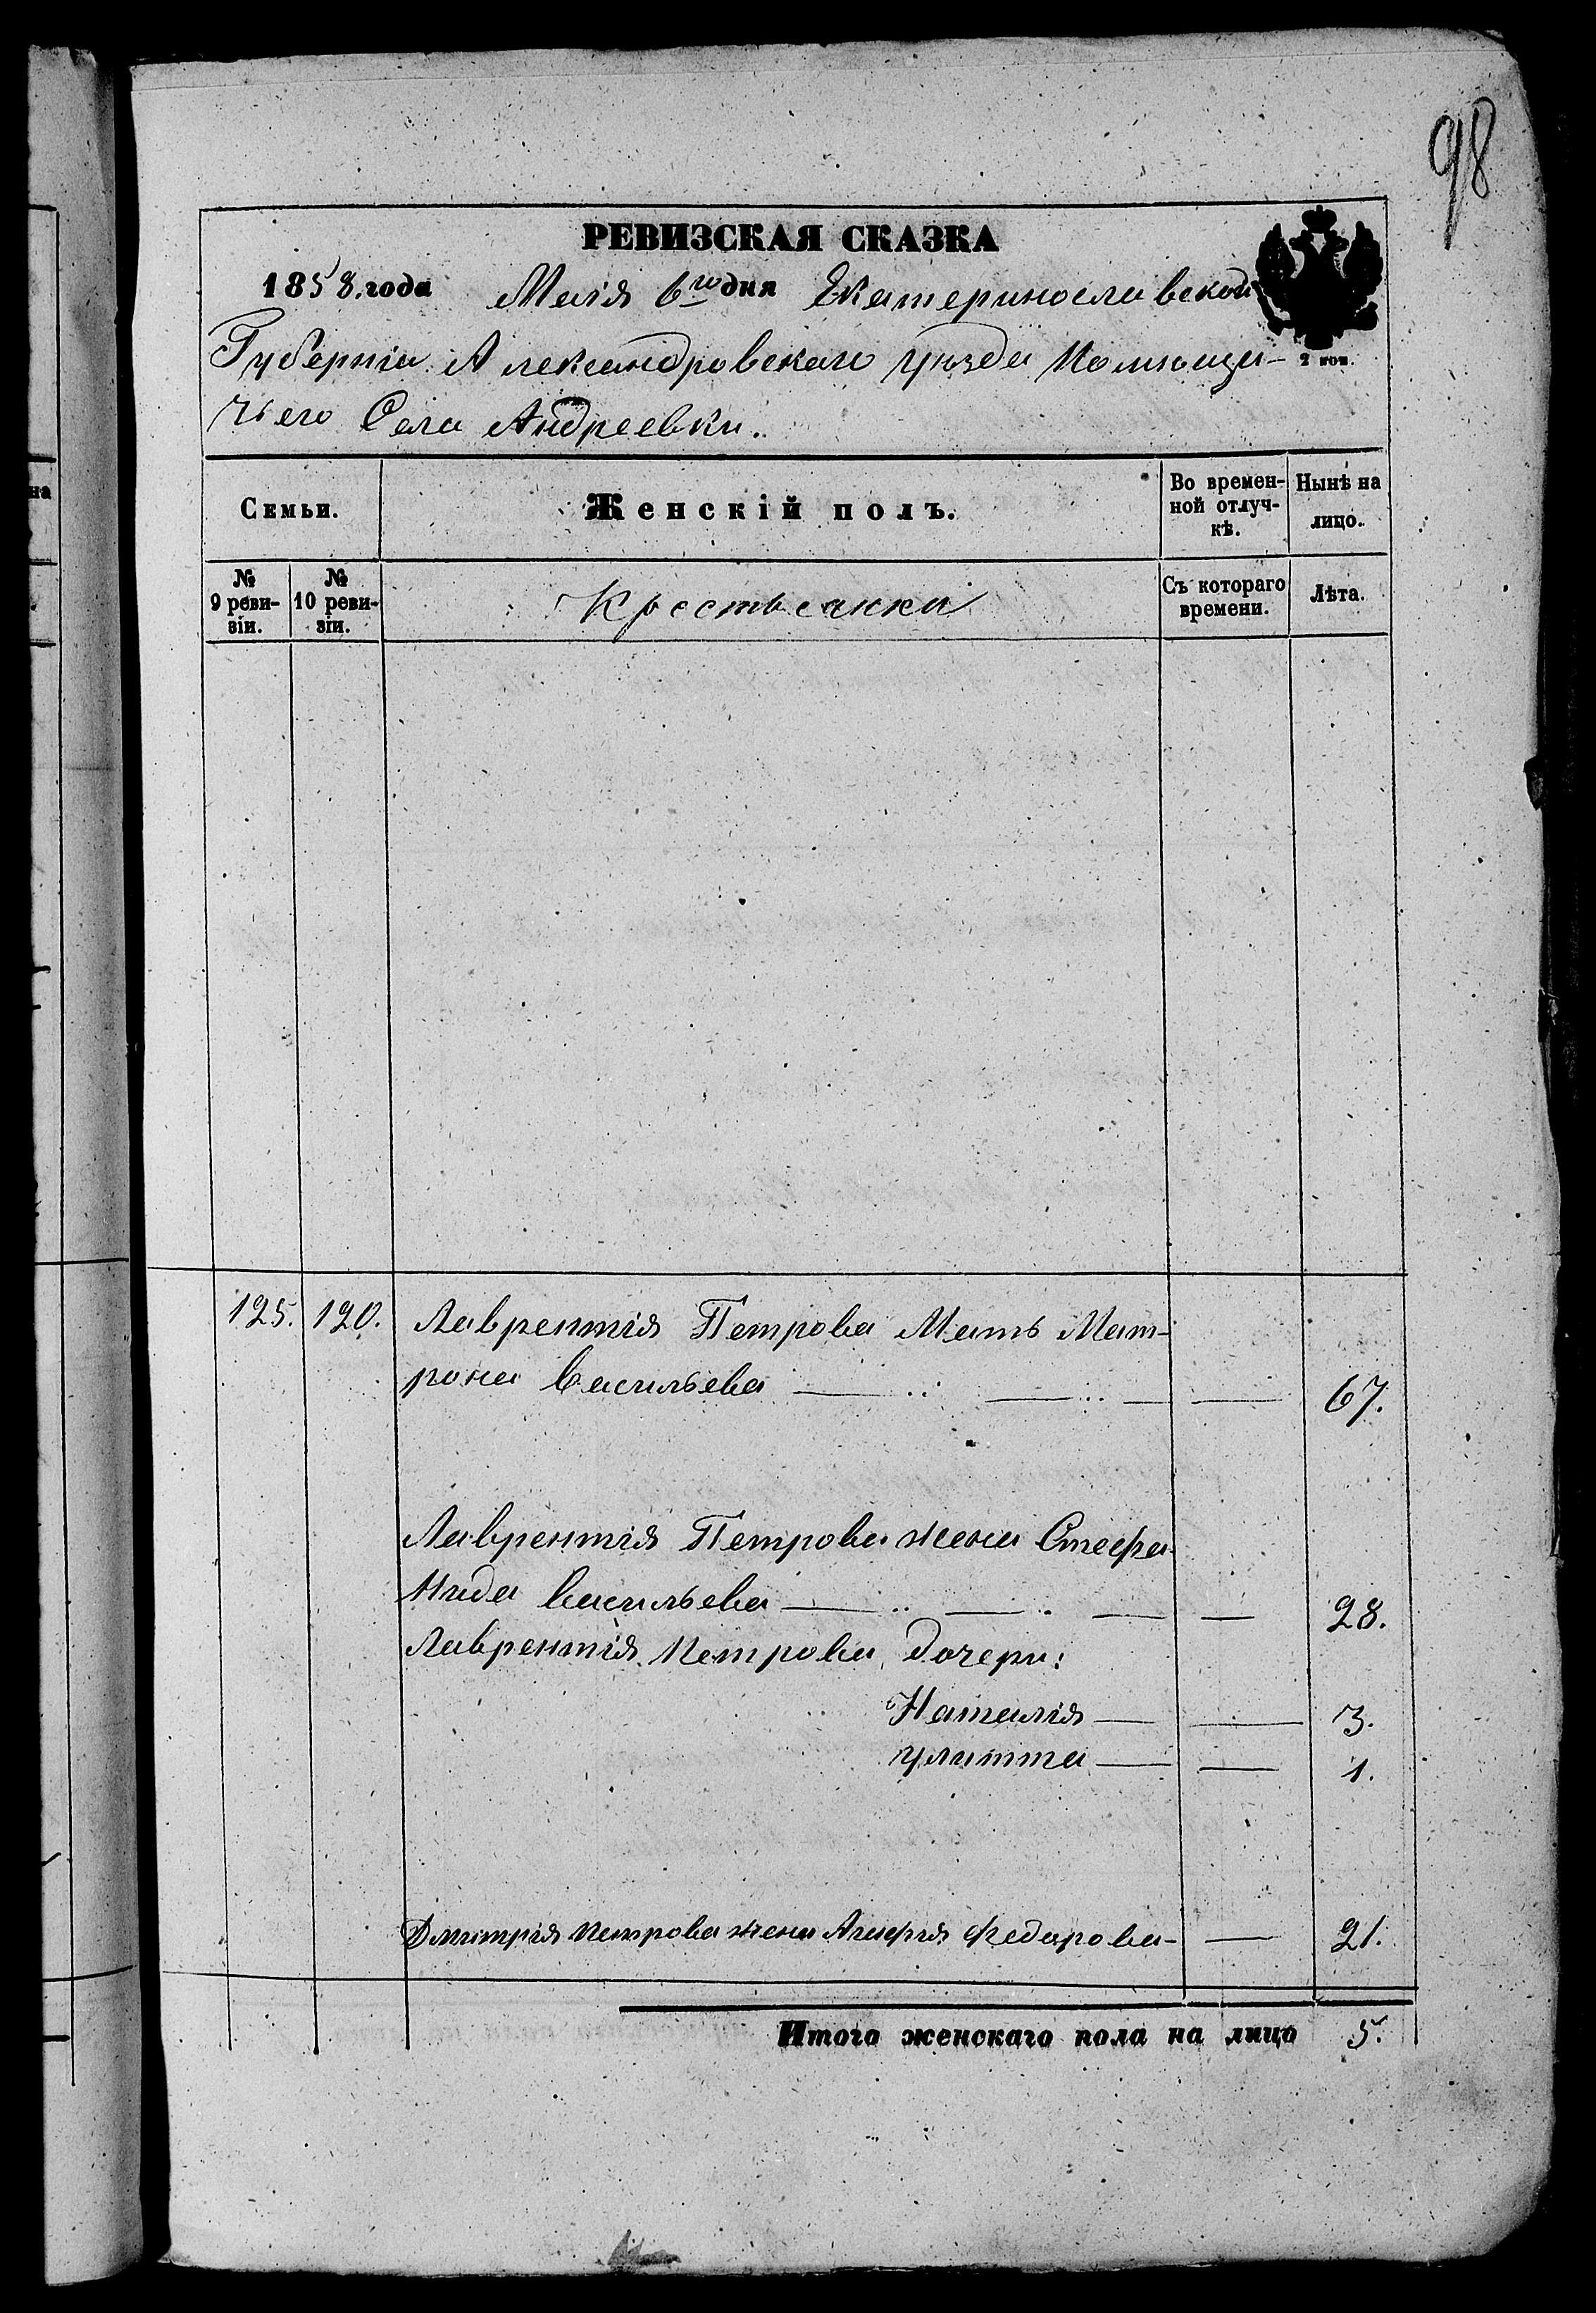 98
РЕВИЗСКАЯ СКАЗКА
1858. года Маія 6го дня Екатеринославской
Губерніи Александровскаго уѣзда Помѣщи-
чьего Села Андреевки.
2 коп.
Семьи.
Женскій полъ.
Во времен-
ной отлуч-
кѣ.
Нынѣ на
лицо.
№
9 реви-
зіи.
№
10 реви-
зіи.
Крестьянки
Съ котораго
времени.
Лѣта.
125. 120. Лаврентія Петрова Мать Мат-
рона Васильева — — — — 67.
Лаврентія Петрова жена Стефа-
нида Васильева — — — — 28.
Лаврентія Петрова дочери:
Наталія — — 3.
Улитта — — 1.
Дмитрія Петрова жена Агафія Федорова — — 21.
Итого женскаго пола на лицо 5.
на